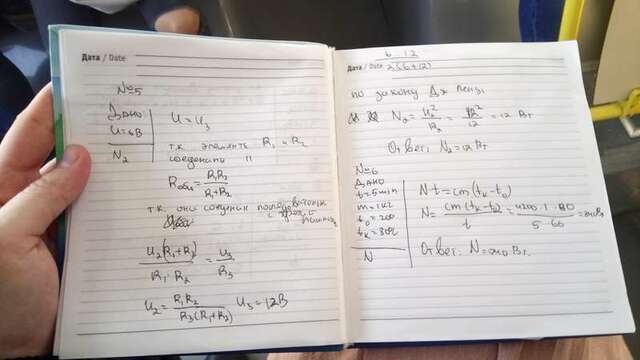 Дата / Date
№5
Дано
U=6В
N₂
U = U₃
т.к. элементы R₁ и R₂
соединены ||
Rобщ = R₁R₂ / R₁+R₂
т.к. они соединены
U₂(R₁+R₂) / R₁·R₂ = U₃ / R₃
U₂ = R₁R₂ / R₃(R₁+R₂) U₃ = 12В
6·12
Дата / Date
по закону Дж Ленца
N₂ = U₂² / R₂ = 12² / 12 = 12 Вт
Ответ: N₂=12Вт
№6
Дано
t=5min
m=1кг
t₀=20
N
N·t = cm(tк-t₀)
N = cm(tк-t₀) / t = 4200·1·80 / 5·60
Ответ: N= Вт.